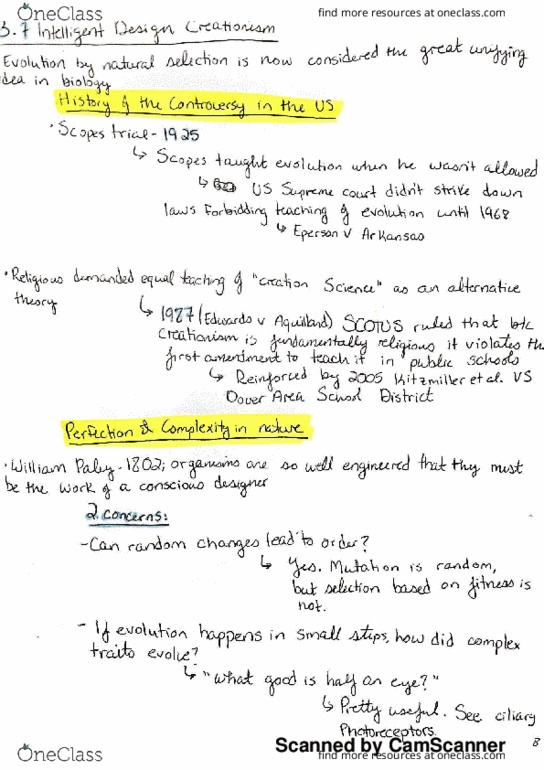 OneClass
find more resources at oneclass.com
3.7 Intelligent Design Creationism
Evolution by natural selection is now considered the great unifying
idea in biology
History of the Controversy in the US
• Scopes trial - 1925
↳ Scopes taught evolution when he wasn't allowed
↳ US Supreme court didn't strike down
laws forbidding teaching of evolution until 1968
↳ Eperson v Arkansas
• Religious demanded equal teaching of "creation Science" as an alternative
theory
↳ 1987 (Edwards v Aquillard) SCOTUS ruled that b/c
creationism is fundamentally religious it violates the
first amendment to teach it in public schools
↳ Reinforced by 2005 Kitzmiller et al. VS
Dover Area School District
Perfection & Complexity in nature
• William Paley - 1802; organisms are so well engineered that they must
be the work of a conscious designer
2 concerns:
- Can random changes lead to order?
↳ Yes. Mutation is random,
but selection based on fitness is
not.
- If evolution happens in small steps, how did complex
traits evolve?
↳ "What good is half an eye?"
↳ Pretty useful. See ciliary
Photoreceptors.
Scanned by CamScanner
8
OneClass
find more resources at oneclass.com